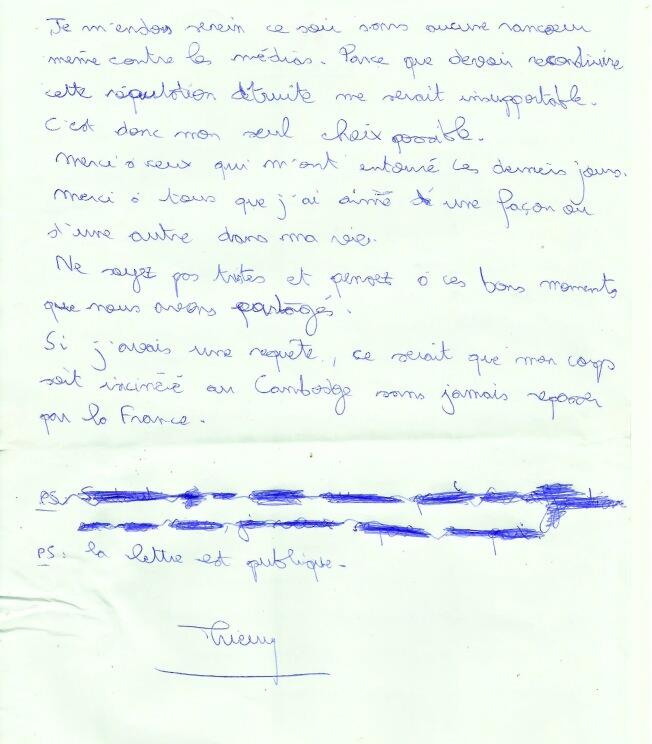 Je m'endors serein ce soir sans aucune rancoeur
même contre les médias. Parce que devoir reconstruire
cette réputation détruite me serait insupportable.
C'est donc mon seul choix possible.
Merci à ceux qui m'ont entouré ces derniers jours.
Merci à tous que j'ai aimé d'une façon ou
d'une autre dans ma vie.
Ne soyez pas tristes et pensez à ces bons moments
que nous avons partagés.
Si j'avais une requête, ce serait que mon corps
soit incinéré au Cambodge sans jamais repasser
par la France.
PS:
PS: la lettre est publique.
Thierry